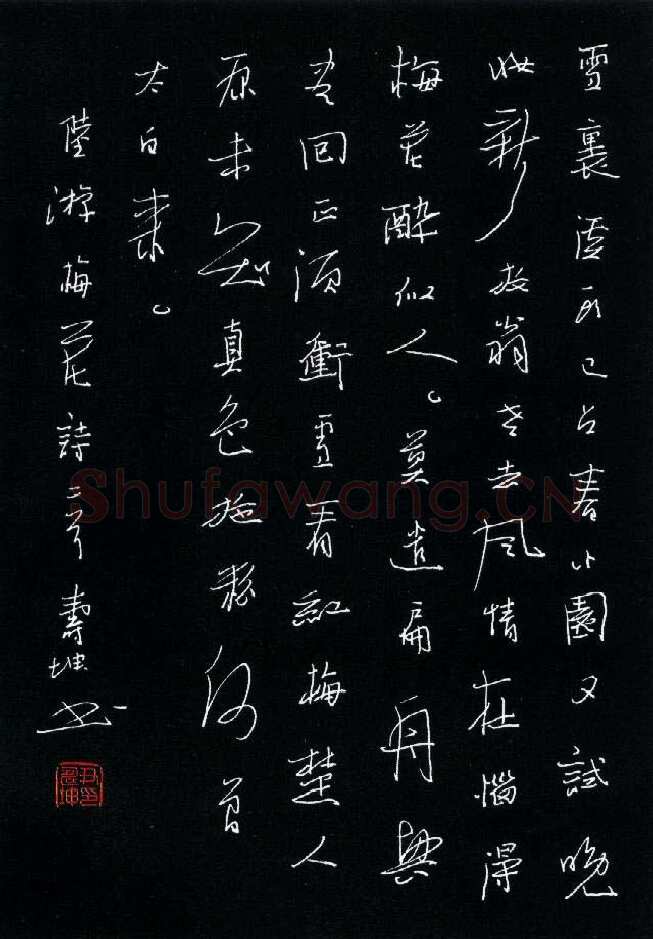 雪裏溪頭已占春小園又試晚
妝新放翁老去風情在惱得
梅花醉似人。莫遣扁舟興
盡回正須衝雪看江梅楚人
原未知真色施粉何曾
太白來。
陸游梅花詩二首壽坤書
尹壽坤印
Shufawang.CN